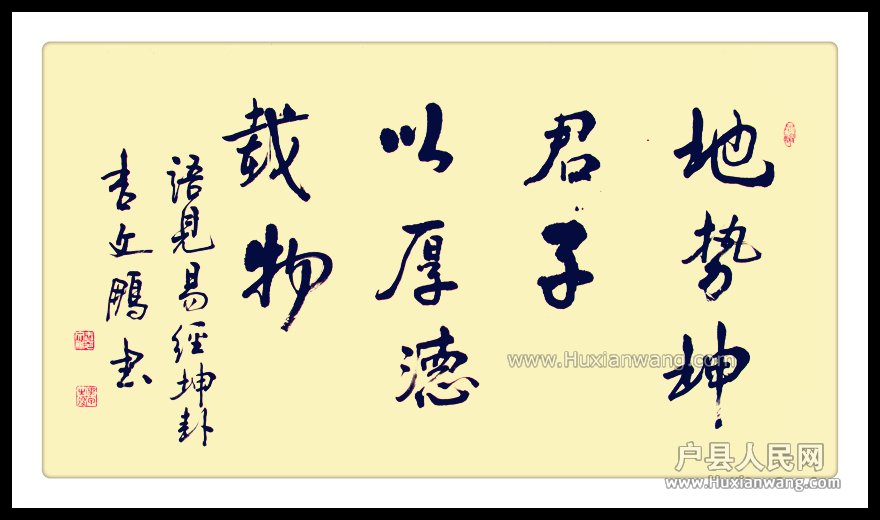 地势坤
君子
以厚德
载物
语见易经坤卦
鹏书
www.Huxianwang.com
户县人民网
www.Huxianwang.com